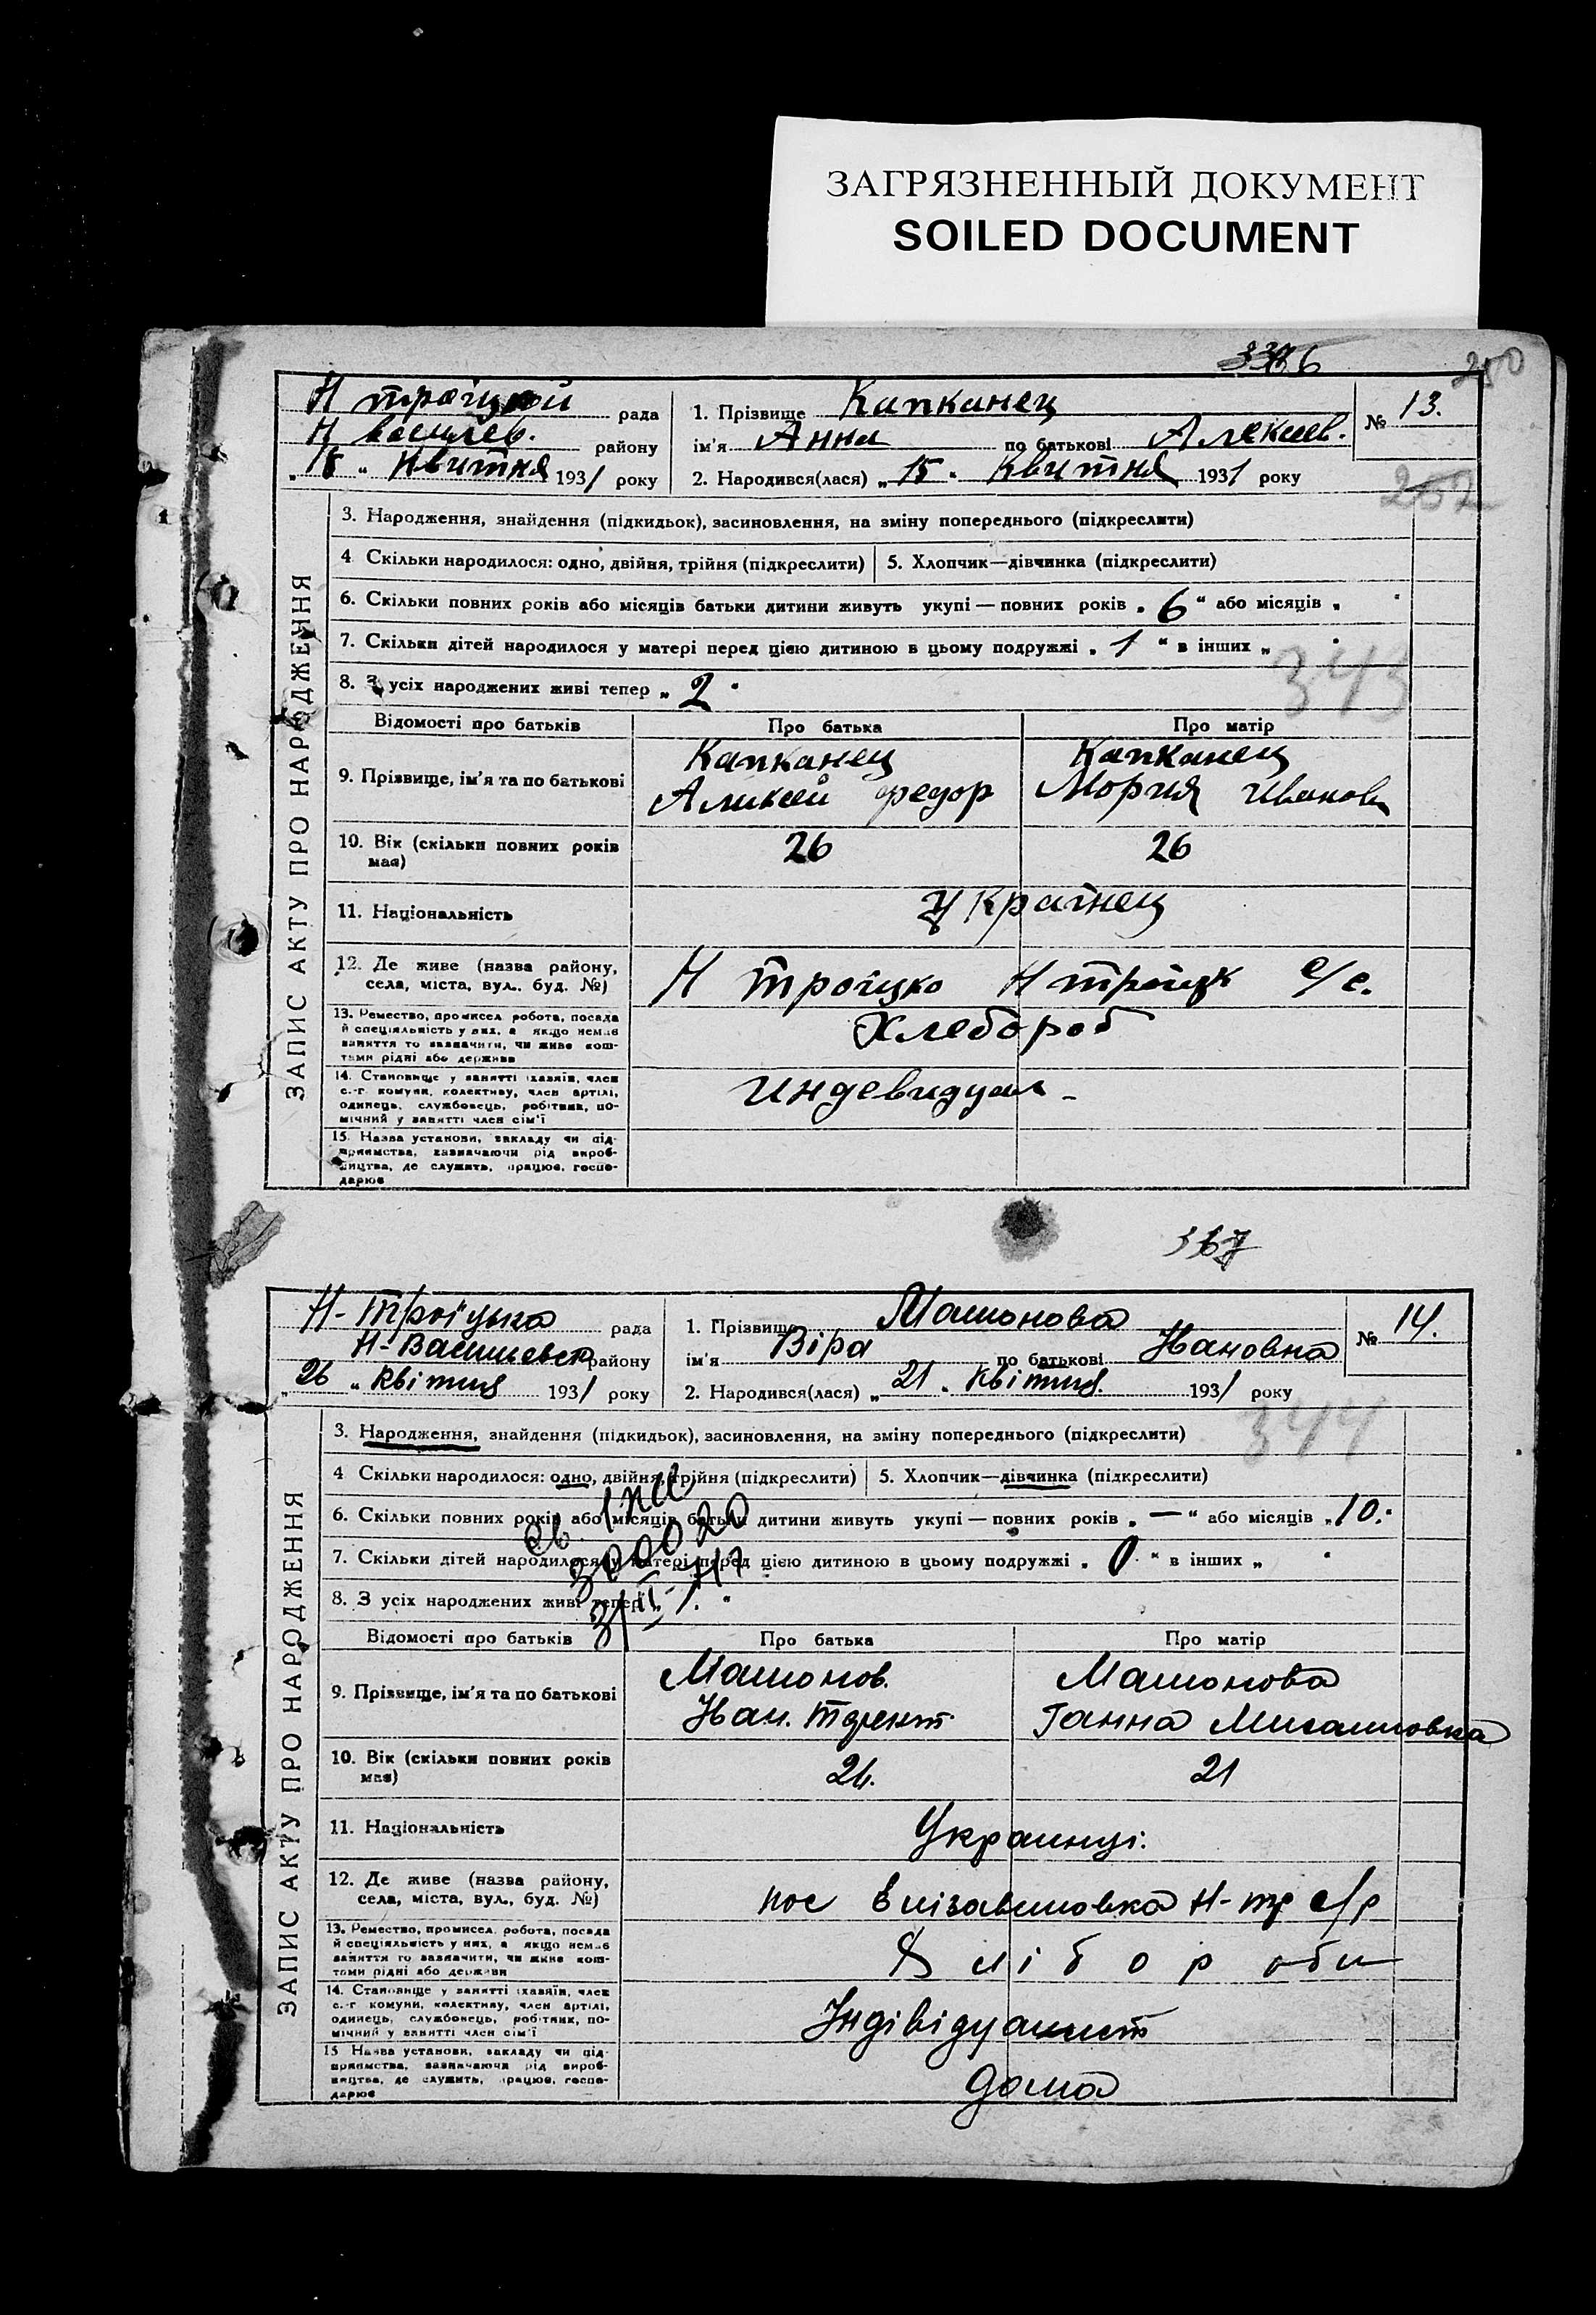 ЗАГРЯЗНЕННЫЙ ДОКУМЕНТ
SOILED DOCUMENT
250
ЗАПИС АКТУ ПРО НАРОДЖЕННЯ
Н троіцкой рада
Н васулев. району
„ 18 „ Квитня 1931 року
1. Прізвище Капканец
ім'я Анна по батькові Алексеев.
2. Народився(лася) „ 15 „ Квитня 1931 року
№ 13.
252
3. Народження, знайдення (підкидьок), засиновлення, на зміну попереднього (підкреслити)
4 Скільки народилося: одно, двійня, трійня (підкреслити) 5. Хлопчик—дівчинка (підкреслити)
6. Скільки повних років або місяців батьки дитини живуть укупі — повних років „ 6 “ або місяців „
7. Скільки дітей народилося у матері перед цією дитиною в цьому подружжі „ 1 “ в інших „
8. З усіх народжених живі тепер „ 2 “
343
Відомості про батьків Про батька Про матір
9. Прізвище, ім'я та по батькові
Капканец
Аликсей федор
Капканец
Мория Иванов
10. Вік (скільки повних років має) 26 26
11. Національність Украінец
12. Де живе (назва району, села, міста, вул., буд. №) Н троіцко Н троіцк с/с.
13. Ремество, промисел робота, посада
й спеціяльність у них, а якщо немає
заняття то зазначити, чи живе кош-
тами рідні або держави
Хлебороб
14. Становище у занятті (хазяїн, член
с.-г. комуни, колективу, член артілі,
одинець, службовець, робітник, по-
мічний у занятті член сім'ї
индевидуал -
15. Назва установи, закладу чи під-
приємства, зазначаючи рід вироб-
ництва, де служить, працює, госпо-
дарює
367
ЗАПИС АКТУ ПРО НАРОДЖЕННЯ
Н-Троіцька рада
Н-Васильевск району
„ 26 „ Квітня 1931 року
1. Прізвище Машонова
ім'я Віра по батькові Івановна
2. Народився(лася) „ 21 „ Квітня. 1931 року
№ 14.
344
3. Народження, знайдення (підкидьок), засиновлення, на зміну попереднього (підкреслити)
4 Скільки народилося: одно, двійня, трійня (підкреслити) 5. Хлопчик—дівчинка (підкреслити)
6. Скільки повних років або місяців батьки дитини живуть укупі — повних років „ — “ або місяців „ 10. “
7. Скільки дітей народилося у матері перед цією дитиною в цьому подружжі „ 0 “ в інших „
8. З усіх народжених живі тепер „ 1. “
Відомості про батьків Про батька Про матір
9. Прізвище, ім'я та по батькові
Машонов.
Іван.
Машонова
Ганна Михайловна
10. Вік (скільки повних років має) 21
11. Національність Украинці.
12. Де живе (назва району, села, міста, вул., буд. №) пос Елізаветовка Н-тр с/р
13. Ремество, промисел робота, посада
й спеціяльність у них, а якщо немає
заняття то зазначити, чи живе кош-
тами рідні або держави
Хлібороби
14. Становище у занятті (хазяїн, член
с.-г комуни, колективу, член артілі,
одинець, службовець, робітник, по-
мічний у занятті член сім'ї
Індівідуалист
15 Назва установи, закладу чи під-
приємства, зазначаючи рід вироб-
ництва, де служить, працює, госпо-
дарює
дома